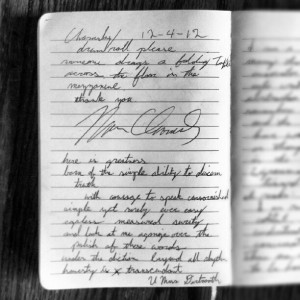 Chomsky 12-4-12
drum roll please
someone drags a folding table
across the floor in the
mezzanine
thank you
here is greatness
born of the simple ability to discern
truth
with courage to speak
simple yet rarely
ageless measured
and look at me sponge over the
polish of these words
under the diction beyond all depth
honesty is transcendent